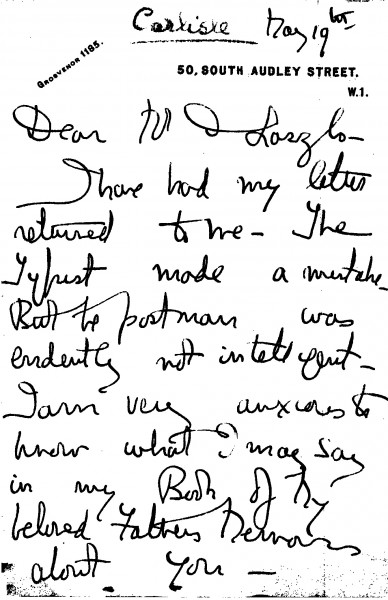 Carlisle May 19th
GROSVENOR 1185.
50, SOUTH AUDLEY STREET.
W.1.
Dear Mr de Laszlo—
I have had my letter
returned to me— The
Typist made a mistake
But the postman was
evidently not intelligent—
I am very anxious to
know what I may say
in my Book of my
beloved Fathers Memoirs
about you —